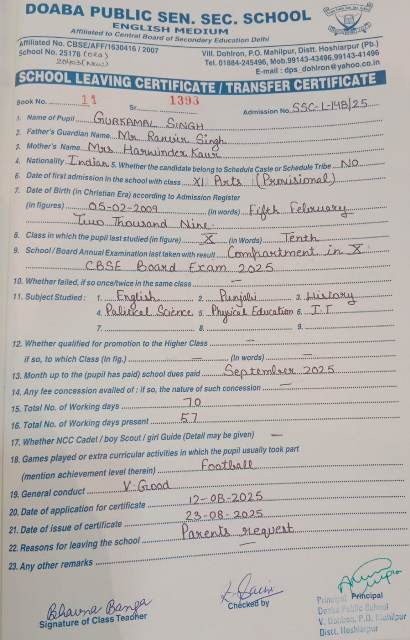 DOABA PUBLIC SEN. SEC. SCHOOL
ENGLISH MEDIUM
Affiliated to Central Board of Secondary Education Delhi
Affiliated No. CBSE/AFF/1630416 / 2007
School No. 25176 (Old)
20403 (New)
Vill. Dohlron, P.O. Mahilpur, Distt. Hoshiarpur (Pb.)
Tel. 01884-245496, Mob.99143-43496,99143-41496
E-mail : dps_dohlron@yahoo.co.in
SCHOOL LEAVING CERTIFICATE / TRANSFER CERTIFICATE
Book No. 11 Sr. 1393 Admission No. SSC-L-14B/25
1. Name of Pupil GURKAMAL SINGH
2. Father's Guardian Name Mr Ranvir Singh
3. Mother's Name Mrs Harwinder Kaur
4. Nationality Indian 5. Whether the candidate belong to Schedule Caste or Schedule Tribe NO
6. Date of first admission in the school with class XI Arts (Provisional)
7. Date of Birth (in Christian Era) according to Admission Register
(in figures) 05-02-2009 (in words) Fifth February
Two Thousand Nine
8. Class in which the pupil last studied (in figure) X (in Words) Tenth
9. School / Board Annual Examination last taken with result Compartment in X
CBSE Board Exam 2025
10. Whether failed, if so once/twice in the same class —
11. Subject Studied : 1. English 2. Punjabi 3. History
4. Political Science 5. Physical Education 6. I.T
7. 8. 9.
12. Whether qualified for promotion to the Higher Class —
if so, to which Class (In fig.) — (In words) —
13. Month up to the (pupil has paid) school dues paid September 2025
14. Any fee concession availed of : if so, the nature of such concession —
15. Total No. of Working days 70
16. Total No. of Working days present 57
17. Whether NCC Cadet / boy Scout / girl Guide (Detail may be given) —
18. Games played or extra curricular activities in which the pupil usually took part
(mention achievement level therein) Football
19. General conduct V. Good
20. Date of application for certificate 12-08-2025
21. Date of issue of certificate 23-08-2025
22. Reasons for leaving the school Parents request
23. Any other remarks —
Bhavna Banga
Signature of Class Teacher
Checked by
Principal Principal
Doaba Public School
V. Dohlron, P.O. Mahilpur
Distt. Hoshiarpur